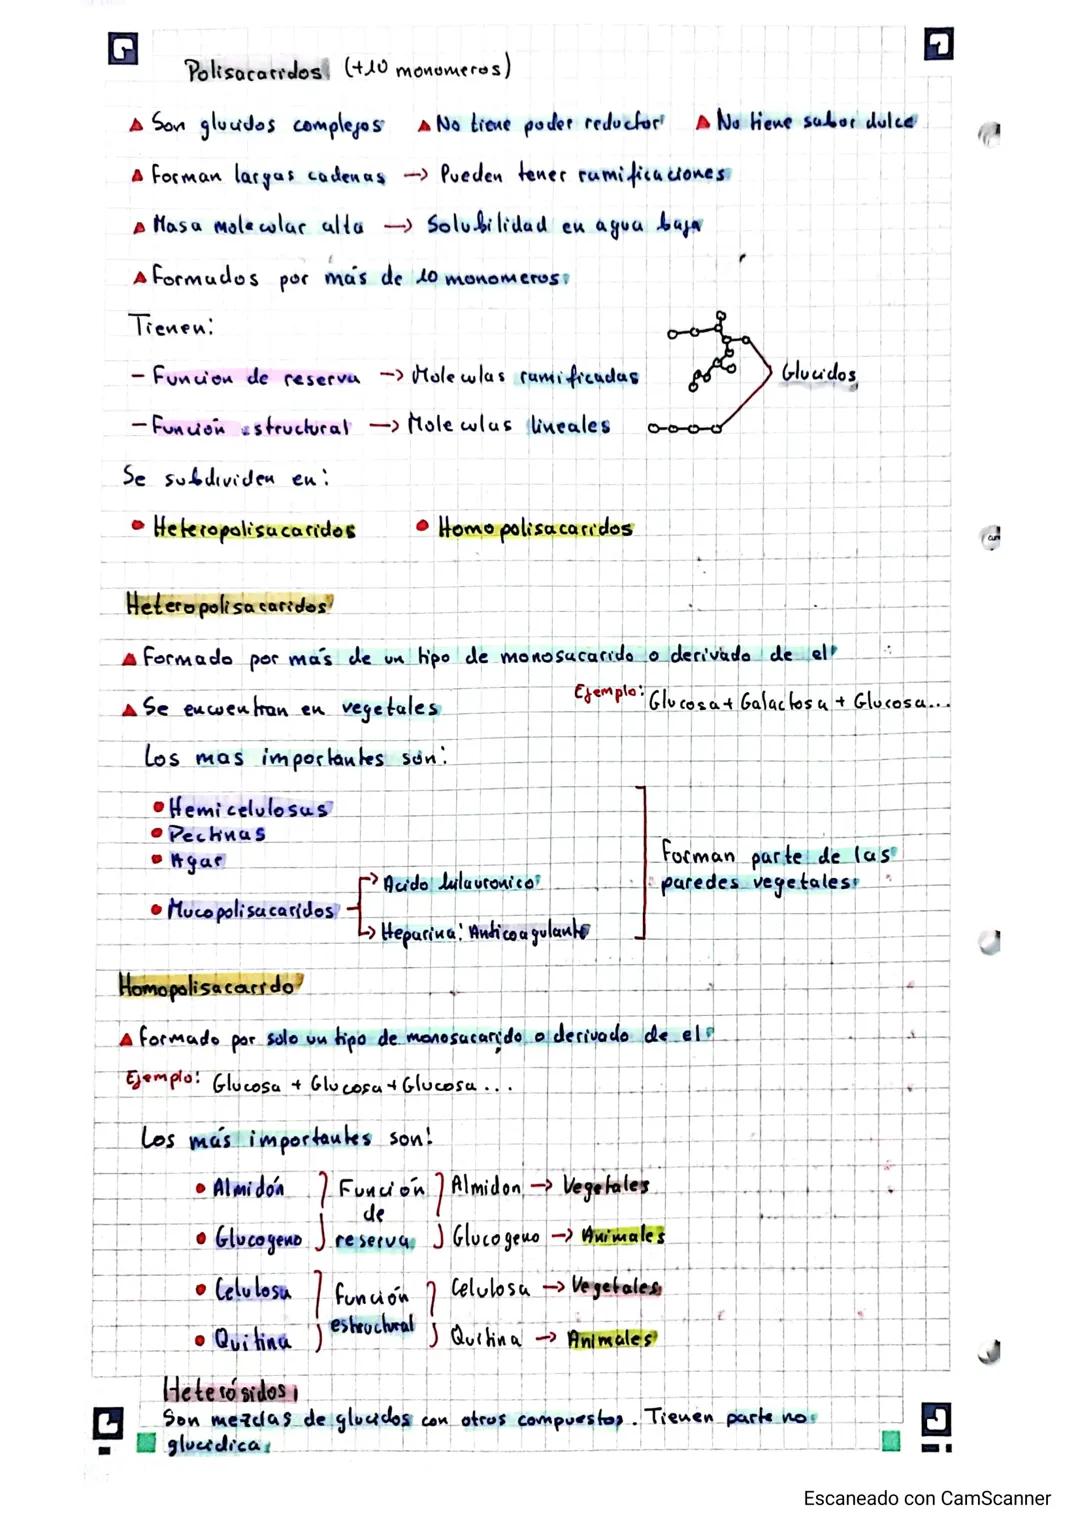 Polisacaridos (+10 monomeros)
▲ Son glucidos complejos ▲ No tiene poder reductor ▲ No tiene sabor dulce
▲ Forman largas cadenas → Pueden tener ramificaciones
▲ Masa molecular alta → Solubilidad en agua baja
▲ Formados por más de 10 monomeros
Tienen:
- Funcion de reserva → Moleculas ramificadas
Glucidos
- Función estructural → Moleculas lineales
Se subdividen en:
• Heteropolisacaridos • Homopolisacaridos
Heteropolisacaridos
▲ Formado por más de un tipo de monosacarido o derivado de el
▲ Se encuentran en vegetales
Ejemplo: Glucosa + Galactosa + Glucosa...
Los mas importantes son:
• Hemicelulosas
• Pectinas
• Agar
Forman parte de las
paredes vegetales
→ Acido hilauronico
• Mucopolisacaridos
→ Heparina: Anticoagulante
Homopolisacarido
▲ Formado por solo un tipo de monosacarido o derivado de el
Ejemplo: Glucosa + Glucosa + Glucosa...
Los más importantes son:
• Almidón Función Almidon → Vegetales
de
• Glucogeno reserva Glucogeno → Animales
• Celulosa Función Celulosa → Vegetales
estructural
• Quitina Quitina → Animales
Heterósidos
Son mezclas de glucidos con otros compuestos. Tienen parte no
glucidica
Escaneado con CamScanner